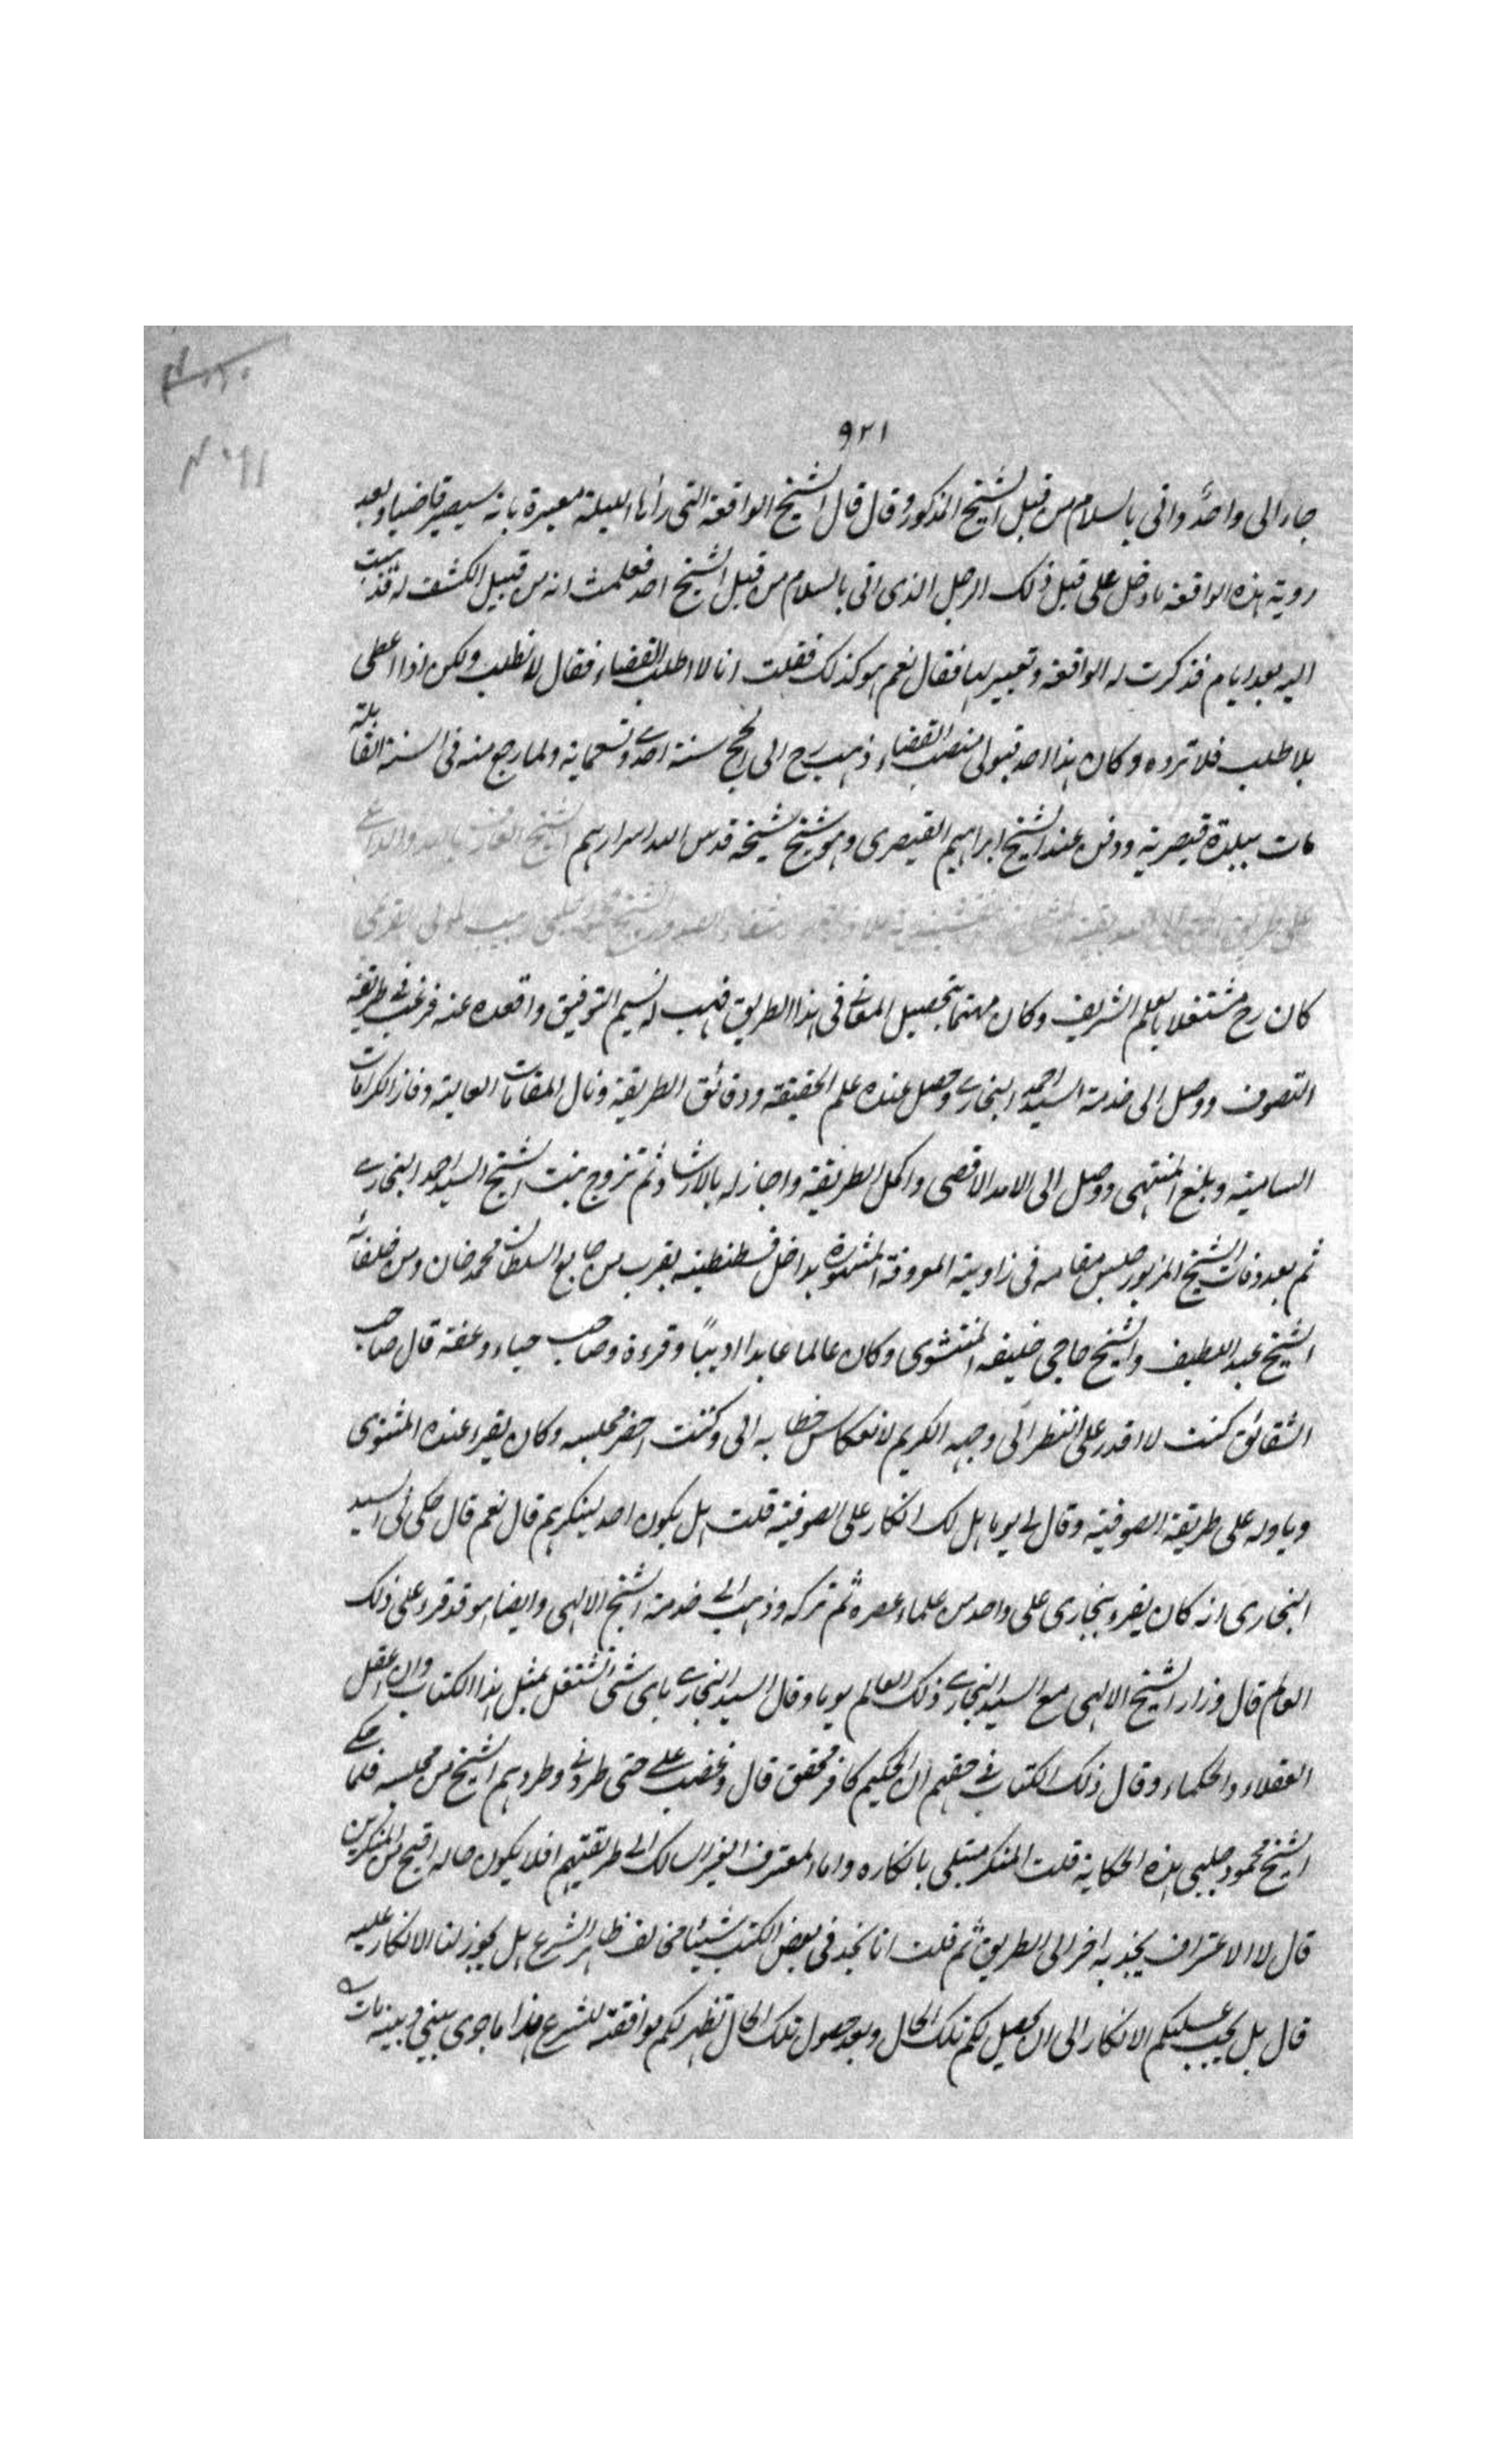 ٩٢١
جاء الى واحدٌ واتى بالسلام من قبل الشيخ المذكور وقال قال الشيخ الواقعة التى رأها الليلة معبرة بانه سيصير قاضيا وبعد
روية هذه الواقعة ما دخل على قبل ذلك الرجل الذى اتى بالسلام من قبل الشيخ احد فعلمت انه من قبيل الكشف له فذهبت
اليه بعد ايام فذكرت له الواقعة وتعبيرها فقال نعم هو كذلك فقلت انا لا اطلب القضاء فقال لا تطلب ولكن اذا اعطى
بلا طلب فلا ترده وكان هذا احد قبولى منصب القضاء ذهب رح الى الحج سنة احدى وتسعماية ولما رجع منه فى السنة القابلة
مات ببلدة قيصرية ودفن عند الشيخ ابراهيم القيصرى وهو شيخ شيخه قدس الله اسرارهم الشيخ العارف بالله والداعى
على طريق
كان رح مشتغلا بالعلم الشريف وكان مهتما بتحصيل المعانى فى هذا الطريق فهب له نسيم التوفيق واقعده عنه فرغب فى طريقة
التصوف ووصل الى خدمة السيد احمد البخارى وحصل عنده علم الحقيقة ودقائق الطريقة ونال المقامات العالية وفاز الكرامات
السامية وبلغ المنتهى ووصل الى الامد الاقصى واكمل الطريقة واجاز له بالارشاد ثم تزوج بنت الشيخ السيد احمد البخارى
ثم بعد وفات الشيخ المزبور جلس مقامه فى زاوية المعروفة المشهورة بداخل قسطنطينيه بقرب من جامع السلطان محمد خان ومن خلفائه
الشيخ عبد اللطيف والشيخ حاجى خليفه المنتشوى وكان عالما عابدا اديبًا وقرءة وصاحب حياء وعفة قال صاحب
الشقائق كنت لا اقدر على النظر الى وجهه الكريم لانعكاس خطابه الى وكنت احضر مجلسه وكان يقرء عنده المثنوى
وياوله على طريقة الصوفية وقال لى يوما هل لك انكار على الصوفية قلت هل يكون احد ينكرهم قال نعم قال حكى لى السيد
البخارى انه كان يقرء ببخارى على واحد من علماء عصره ثم تركه وذهب الى خدمة الشيخ الالهى وايضا هو قد قرء على ذلك
العالم قال وزار الشيخ الالهى مع السيد البخارى ذلك العالم يوما وقال السيد البخارى باى شئ تشتغل بمثل هذا الكتاب وان اعقل
العقلاء والحكماء وقال ذلك الكتاب فى حقهم ان الحكيم كافر محقق قال وغضب على حتى طردنى وطردهم الشيخ من مجلسه فلما حكى
الشيخ محمود چلبى هذه الحكاية قلت المنكر مبتلى بانكاره واما المعترف الغير السالك الى طريقتهم افلا يكون حاله اقبح من المنكرين
قال لا الاعتراف يجذبه اخرا الى الطريق ثم قلت انا نجد فى بعض الكتب شيئا مخالف ظاهر الشرع هل يجوز لنا الانكار عليه
قال بل يجب عليكم الانكار الى ان يحصل لكم تلك الحال وبعد حصول تلك الحال تظهر لكم موافقته للشرع هذا ما جرى بينى وبينه مات